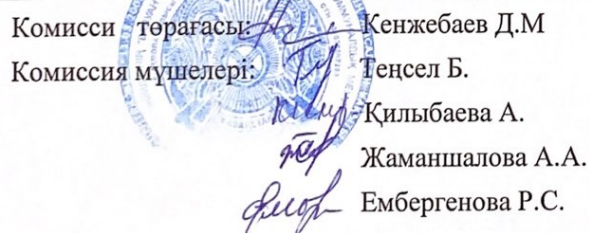 Комисси төрағасы: Кенжебаев Д.М
Комиссия мүшелері: Теңсел Б.
Қилыбаева А.
Жаманшалова А.А.
Ембергенова Р.С.